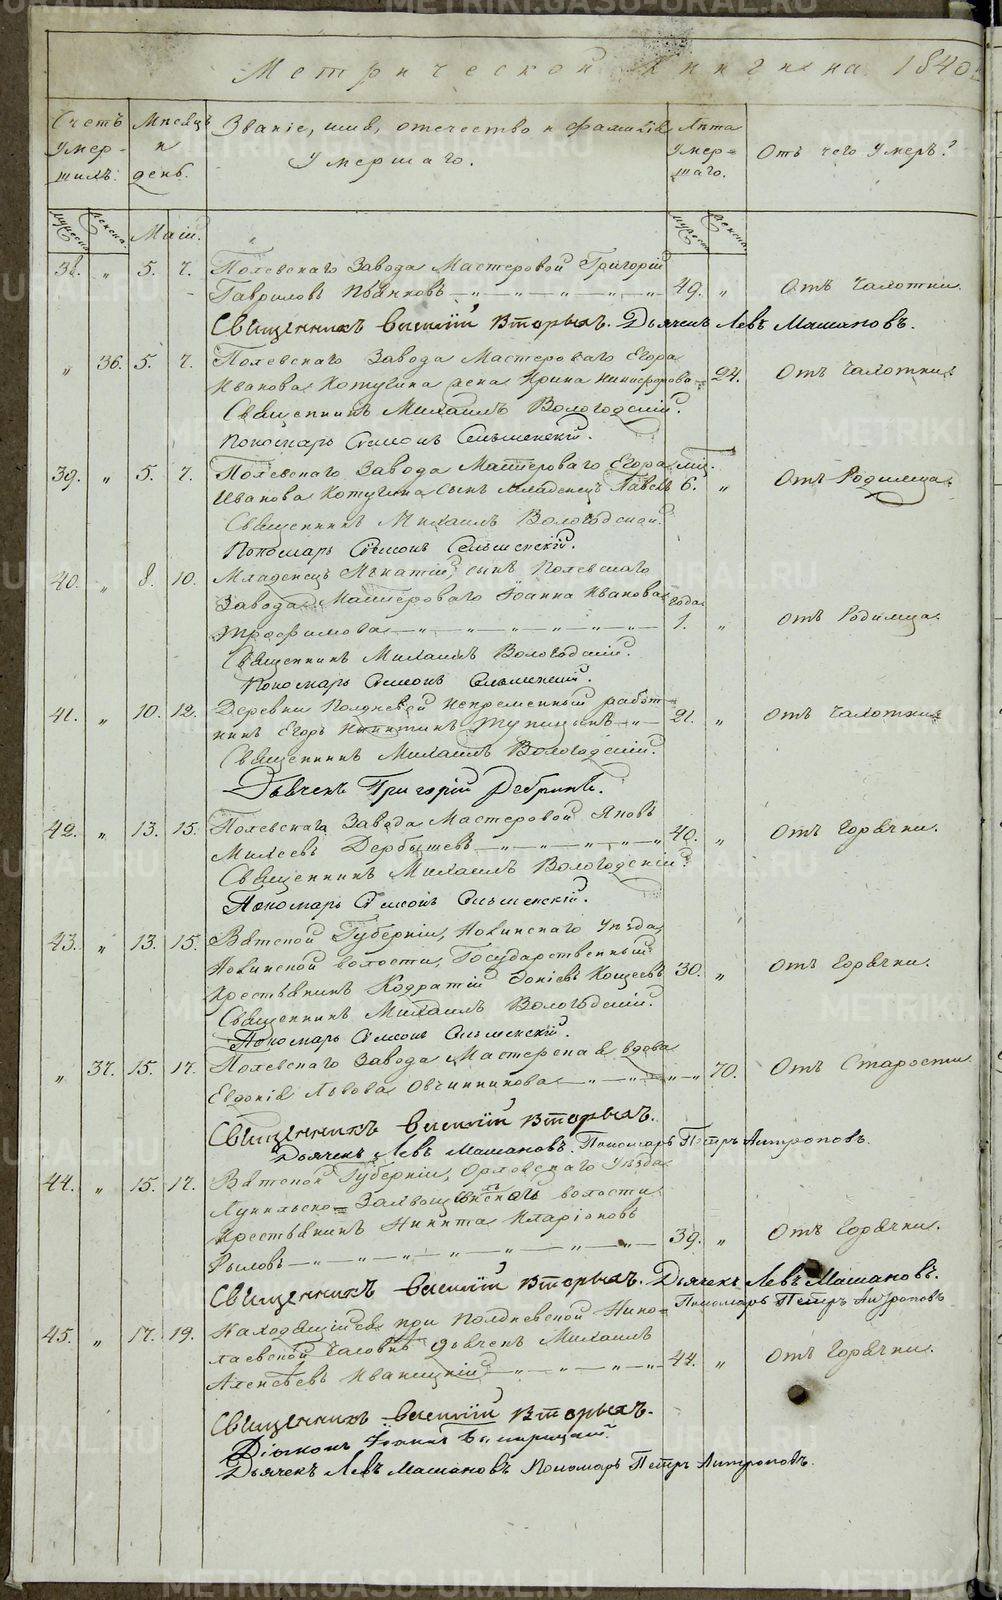 Метрической книги на 1840
Счетъ умершихъ. Мѣсяцъ и день. Званіе, имя, отечество и фамилія умершаго. Лѣта умершаго. Отъ чего умеръ?
мужеска женска Маій. мужеска женска
38. „ 5. 7. Полевскаго Завода Мастеровой Григорій
Гавриловъ Пьянковъ 49. „ Отъ Чахотки.
Священникъ Василій Вторыхъ. Дьячекъ Левъ Машановъ.
„ 36. 5. 7. Полевскаго Завода Мастероваго Егора
Иванова Котугина жена Ирина Никифорова 24. Отъ Чахотки
Священникъ Михаилъ Вологодскій.
Пономарь Симонъ Сельменскій.
39. „ 5. 7. Полевскаго Завода Мастероваго Егора міс.
Иванова Котугина сынъ младенецъ Павелъ 6. „ Отъ Родимца.
Священникъ Михаилъ Вологодской.
Пономарь Симонъ Сельменскій.
40. „ 8. 10. Младенецъ Игнатій, сынъ Полевскаго
Завода Мастероваго Іоанна Иванова года
Трофимова 1. „ Отъ Родимца.
Священникъ Михаилъ Вологодскій.
Пономарь Симонъ Сельменскій.
41. „ 10. 12. Деревни Полдневой Непременный работ-
никъ Егоръ Никитинъ Тупицынъ 21. „ Отъ Чахотки
Священникъ Михаилъ Вологодскій.
Дьячекъ Григорій Дебринъ.
42. „ 13. 15. Полевскаго Завода Мастеровой Яковъ
Михеевъ Дербышевъ 40. „ Отъ Горячки.
Священникъ Михаилъ Вологодскій.
Пономарь Симонъ Сельменскій.
43. „ 13. 15. Вятской Губерніи, Нолинскаго Уѣзда
Нолинской волости, Государственный
Крестьянинъ Кодратій Іонѣевъ Кощеевъ 30. „ Отъ Горячки.
Священникъ Михаилъ Вологодскій.
Пономарь Симонъ Сельменскій.
„ 37. 15. 17. Полевскаго Завода Мастерская вдова
Евдокія Львова Овчинникова 70. Отъ Старости
Священникъ Василій Вторыхъ.
Дьячекъ Левъ Машановъ. Пономарь Петръ Антроповъ.
44. „ 15. 17. Вятской Губерніи, Орловскаго Уѣзда
волости
Крестьянинъ Никита Иларіоновъ
Рыловъ 39. „ Отъ Горячки.
Священникъ Василій Вторыхъ. Дьячекъ Левъ Машановъ.
Пономарь Петръ Антроповъ
45. „ 17. 19. Находящійся при Полдневской Нико-
лаевской Часовнѣ дьячекъ Михаилъ
Алексѣевъ Иваницкій 44. „ Отъ Горячки.
Священникъ Василій Вторыхъ.
Діаконъ Іоаннъ
Дьячекъ Левъ Машановъ Пономарь Петръ Антроповъ.
METRIKI.GASO-URAL.RU